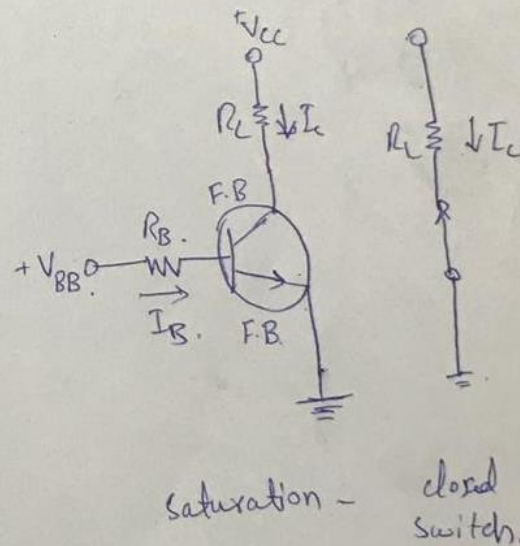 +VCC
RL ↓ Ic
RL ↓ Ic
F.B
RB.
+VBB.
→
IB.
F.B.
saturation - closed
switch.